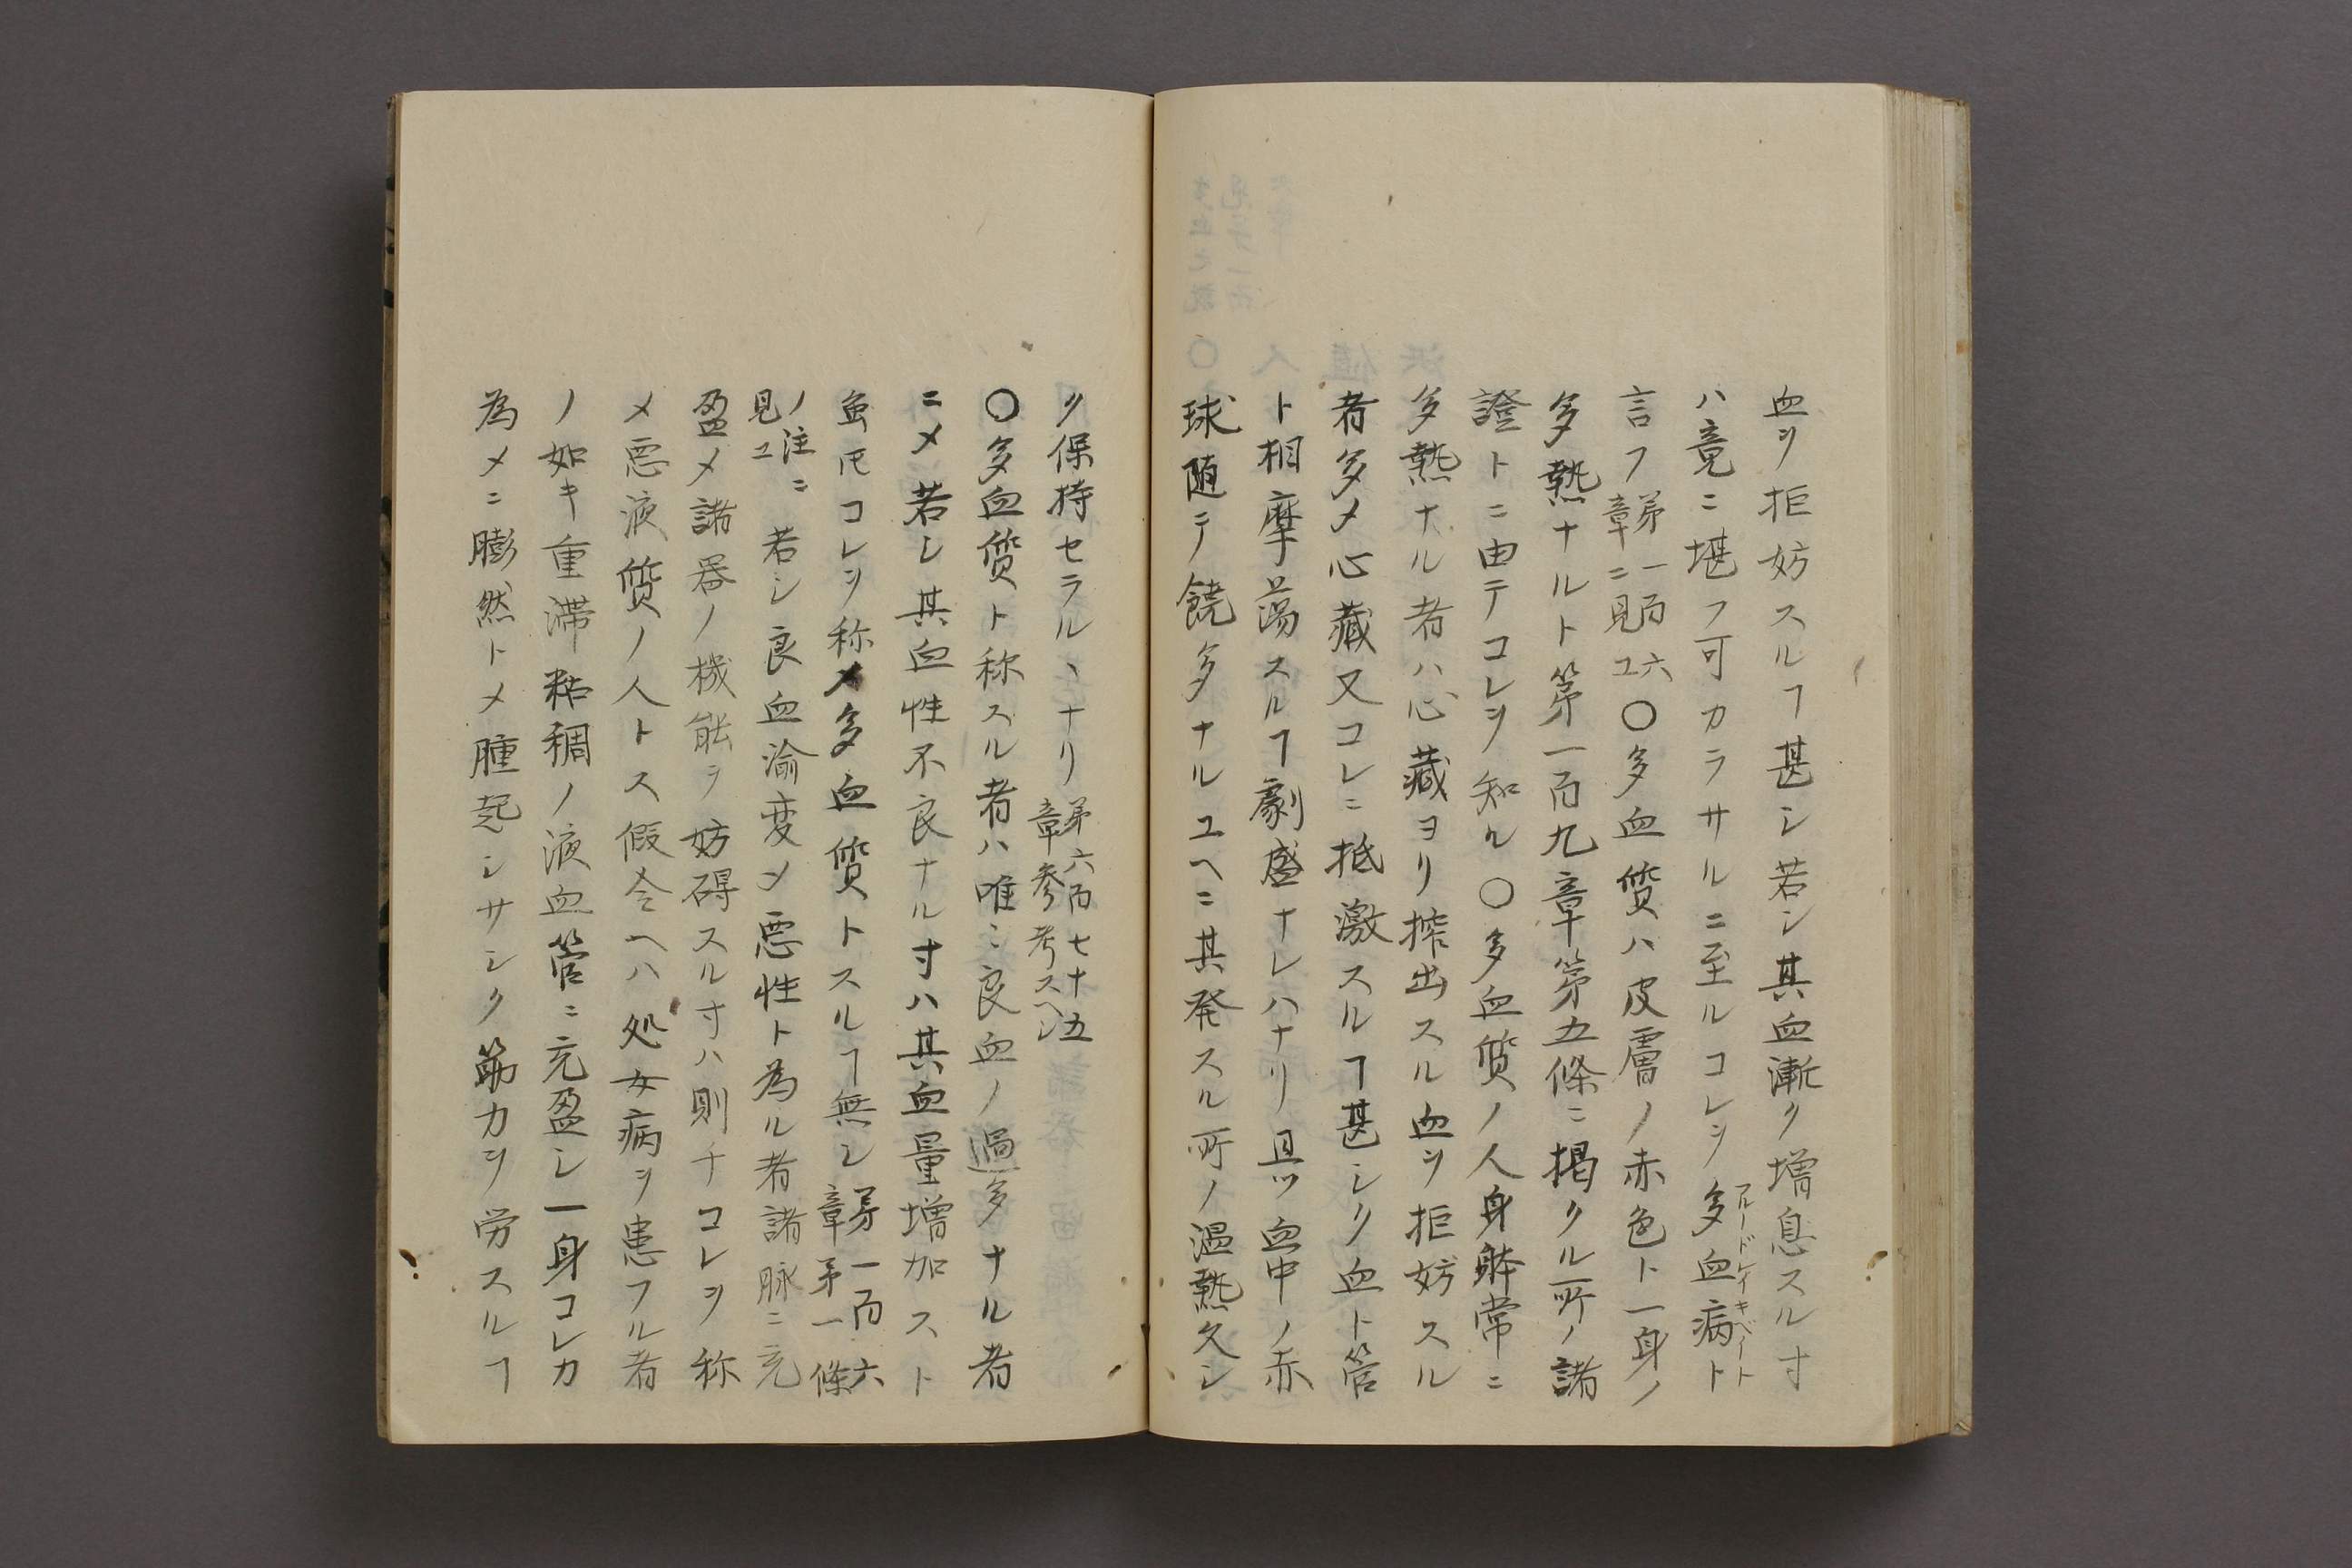 血ヲ拒妨スルヿ甚シ若シ其血漸ク増息スル寸
ハ竟ニ堪フ可カラサルニ至ルコレヲ多血病ト
フルードレイキベート
言フ
第一百六
章ニ見ユ
〇多血質ハ皮膚ノ赤色ト一身ノ
多熱ナルト第一百九章第五條ニ掲クル所ノ諸
證トニ由テコレヲ知ル〇多血質ノ人身躰常ニ
多熱ナル者ハ心藏ヨリ搾出スル血ヲ拒妨スル
者多メ心藏又コレニ抵激スルヿ甚シク血ト管
ト相摩蕩スルヿ劇盛ナレハナリ且ツ血中ノ赤
球随テ饒多ナルユヘニ其発スル所ノ温熱久シ
ク保持セラルヽナリ
第六百七十五
章参考スヘシ
〇多血質ト称スル者ハ唯ニ良血ノ過多ナル者
ニメ若シ其血性不良ナル寸ハ其血量増加スト
虽𪜈コレヲ称メ多血質トスルヿ無シ
第一百六
章第一條
ノ注ニ
見ユ
若シ良血渝変メ悪性ト為ル者諸脉ニ充
盈メ諸器ノ機能ヲ妨碍スル寸ハ則チコレヲ称
メ悪液質ノ人トス假令ヘハ処女病ヲ患フル者
ノ如キ重滞粘稠ノ液血管ニ充盈シ一身コレカ
為メニ膨然トメ腫起シサシク筋力ヲ労スルヿ